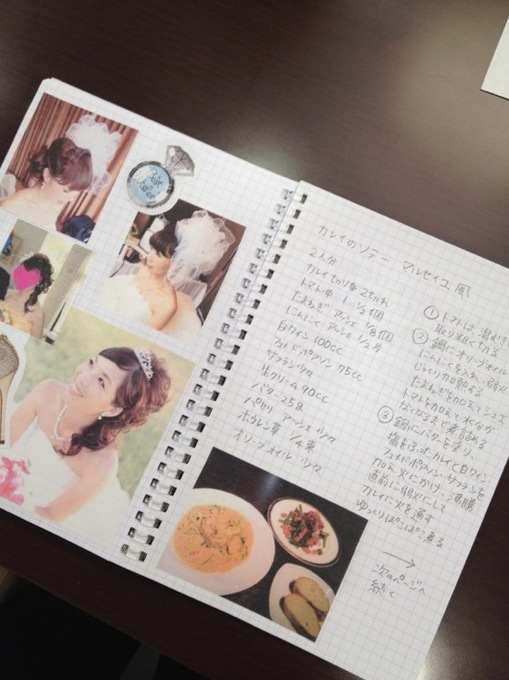 カレイのソテー マルセイユ風
2人分
カレイ切り身 2切れ
トマト中 1 1/2個
たまねぎ アッシェ 1/8個
にんにく アッシェ 1/2片
白ワイン 100cc
フュメドポワソン 75cc
サフラン少々
生クリーム 90cc
バター 25g
パセリ アッシェ 少々
ホウレン草 1/4束
オリーブオイル 少々
① トマトは湯むき
取り粗く切る
② 鍋にオリーブオイル
にんにくを入れ、弱火
じっくり加熱する
たまねぎを加えシュエ
トマトを加えて水分が
なくなるまで煮詰める
③ 鍋にバターを塗り、
塩をふったカレイと白ワイン、
フュメドポワソン・サフランを
加え火にかけ、沸騰
直前に弱火にして
カレイに火を通す
ゆっくりぽこぽこ煮る
→
次のページへ
続く